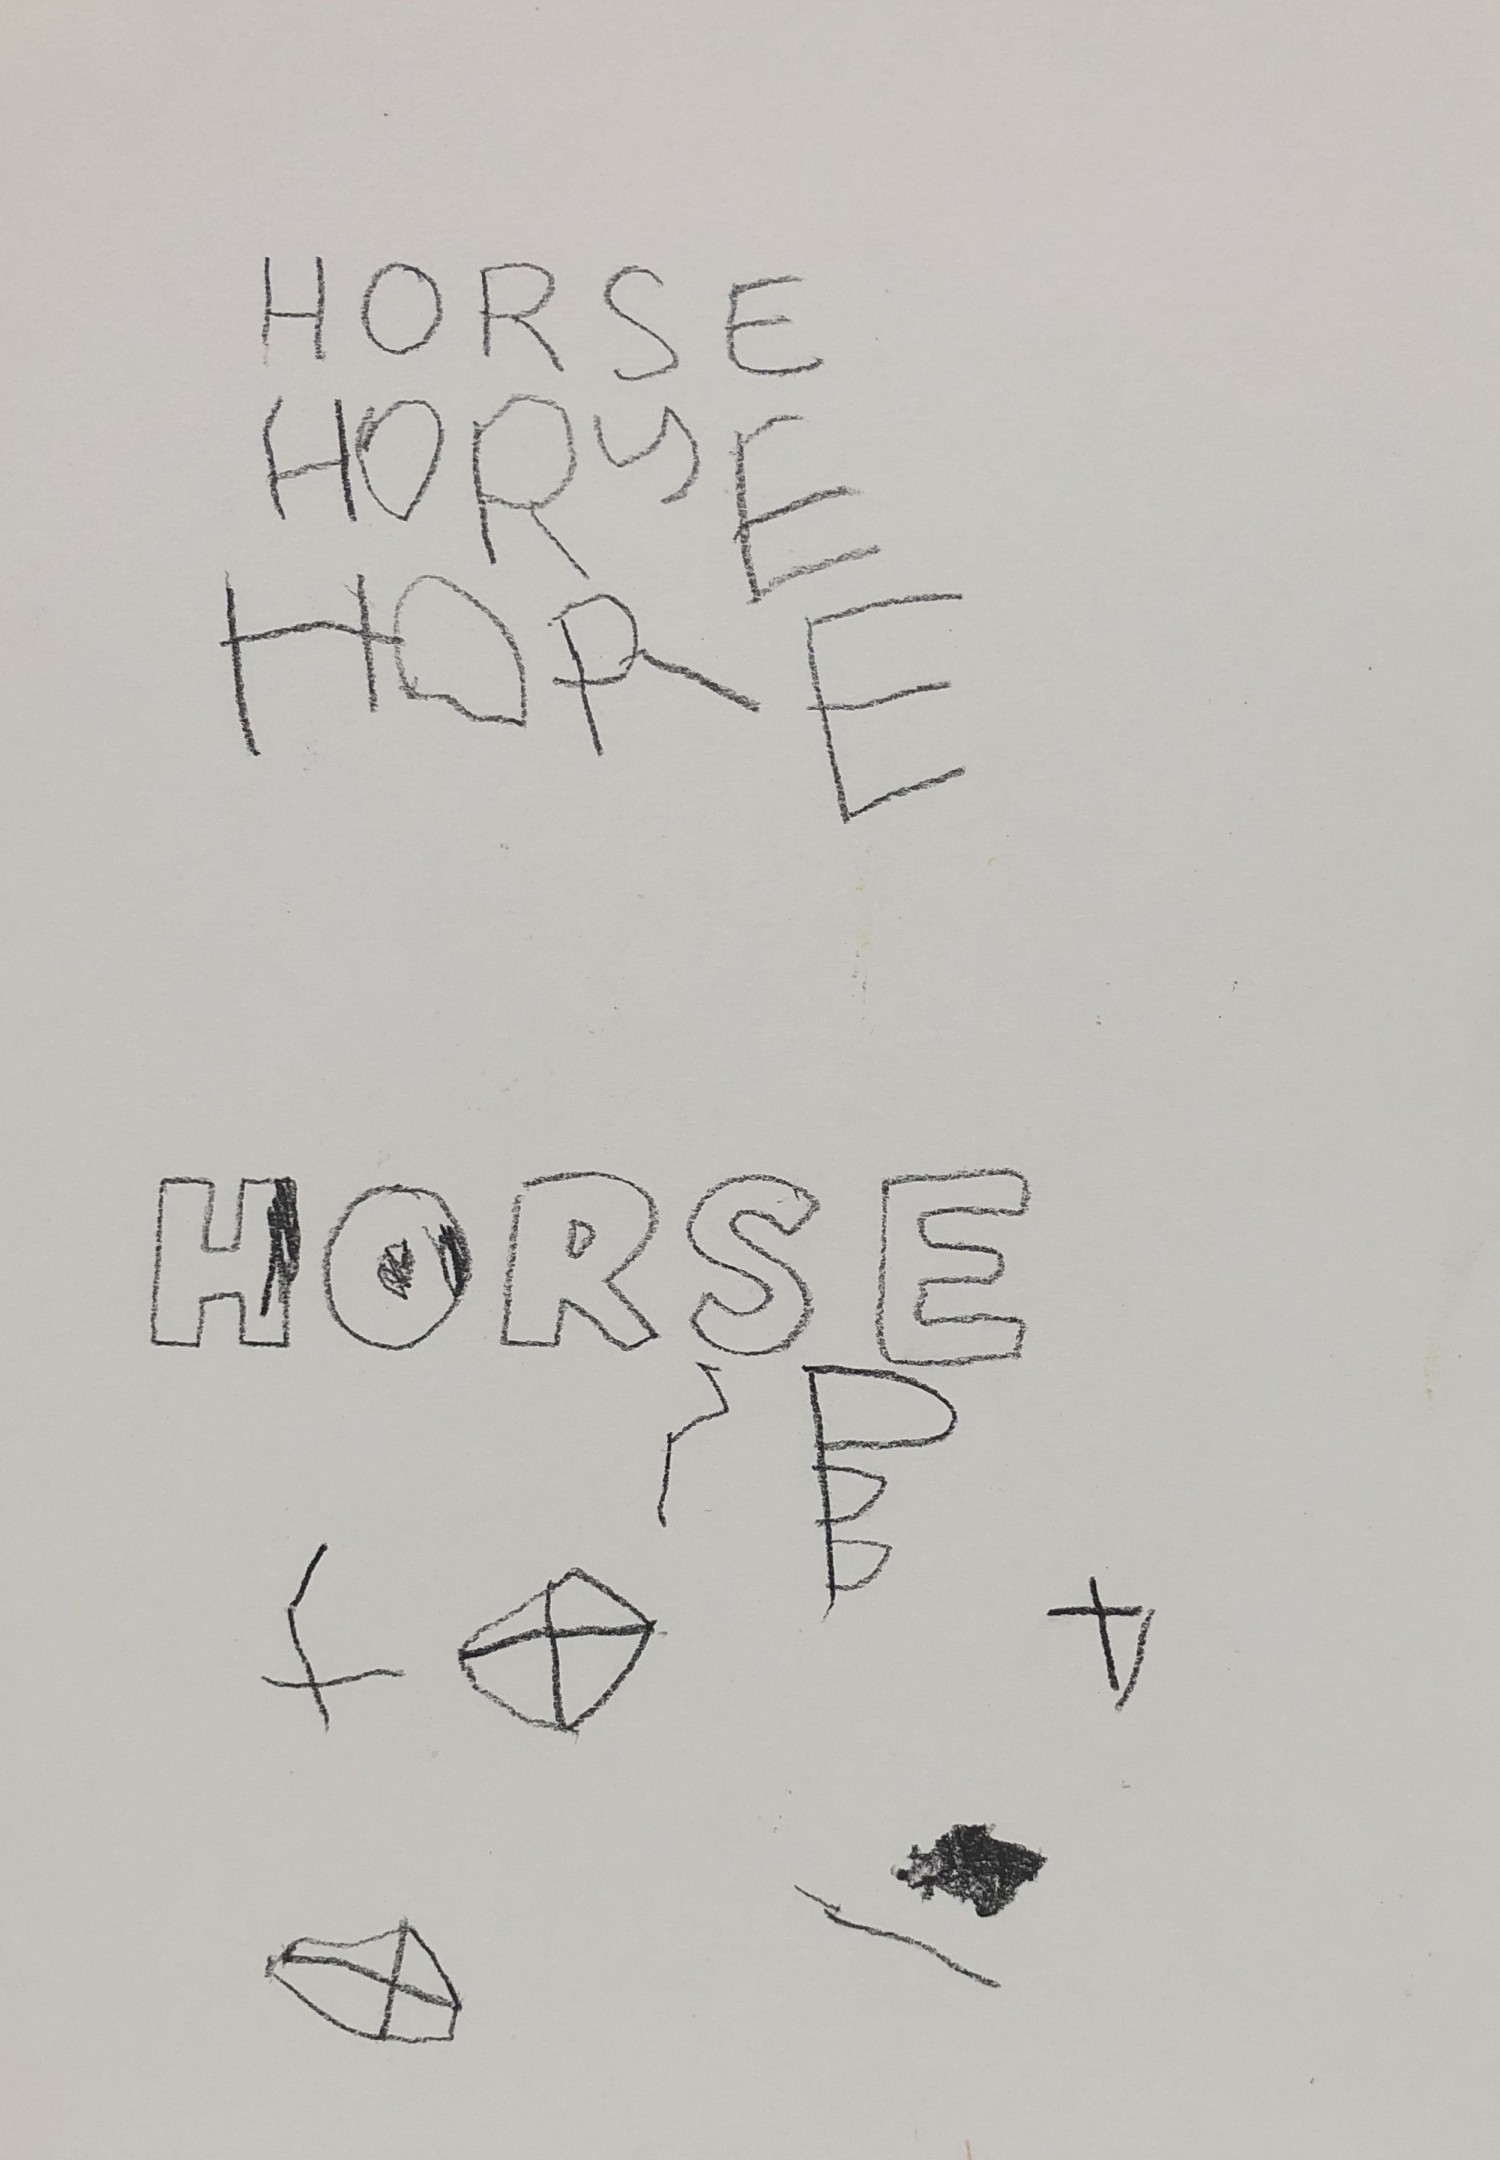 HORSE
HORSE
HORE
HORSE